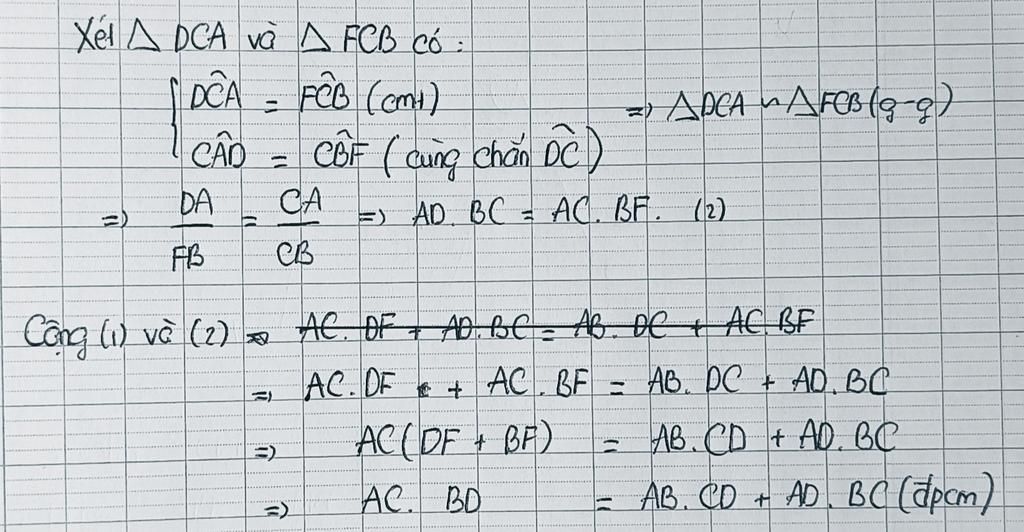 Xét △ DCA và △ FCB có :
DĈA = FĈB (cmt)
=> △DCA ∽ △FCB (g-g)
CÂD = CB̂F ( cùng chắn D͡C )
=> DA/FB = CA/CB => AD. BC = AC. BF. (2)
Cộng (1) và (2) => AC. DF + AD. BC = AB. DC + AC. BF
=> AC. DF + AC . BF = AB. DC + AD. BC
=> AC(DF + BF) = AB. CD + AD. BC
=> AC. BD = AB. CD + AD. BC (đpcm)